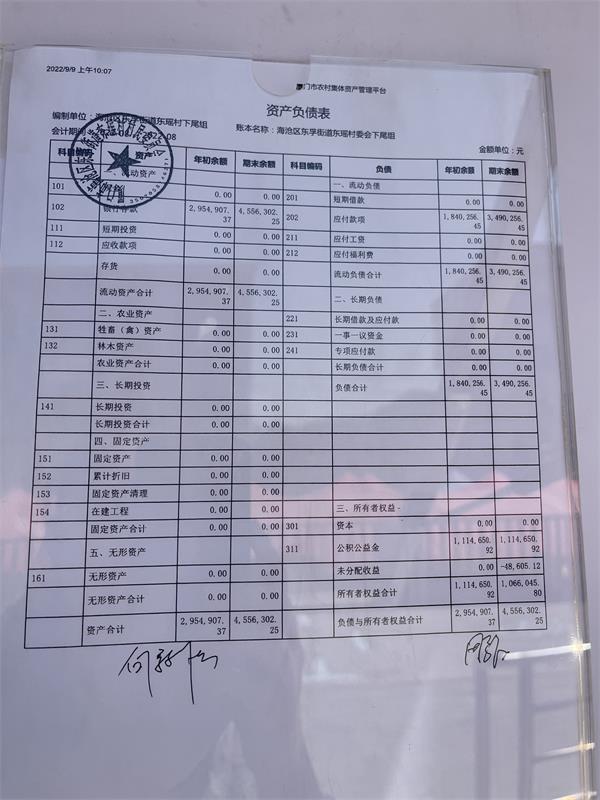 2022/9/9 上午10:07
厦门市农村集体资产管理平台
资产负债表
编制单位：海沧区东孚街道东瑶村下尾组
会计期间：2022-08 - 2022-08 账本名称：海沧区东孚街道东瑶村委会下尾组 金额单位：元
科目编码 资产 年初余额 期末余额 科目编码 负债 年初余额 期末余额
一、流动资产 一、流动负债
101 0.00 0.00 201 短期借款 0.00 0.00
102 银行存款 2,954,907.37 4,556,302.25 202 应付款项 1,840,256.45 3,490,256.45
111 短期投资 0.00 0.00 211 应付工资 0.00 0.00
112 应收款项 0.00 0.00 212 应付福利费 0.00 0.00
存货 0.00 0.00 流动负债合计 1,840,256.45 3,490,256.45
流动资产合计 2,954,907.37 4,556,302.25 二、长期负债
二、农业资产 221 长期借款及应付款 0.00 0.00
131 牲畜（禽）资产 0.00 0.00 231 一事一议资金 0.00 0.00
132 林木资产 0.00 0.00 241 专项应付款 0.00 0.00
农业资产合计 0.00 0.00 长期负债合计 0.00 0.00
三、长期投资 负债合计 1,840,256.45 3,490,256.45
141 长期投资 0.00 0.00
长期投资合计 0.00 0.00
四、固定资产
151 固定资产 0.00 0.00
152 累计折旧 0.00 0.00
153 固定资产清理 0.00 0.00
154 在建工程 0.00 0.00 三、所有者权益
固定资产合计 0.00 0.00 301 资本 0.00 0.00
五、无形资产 311 公积公益金 1,114,650.92 1,114,650.92
161 无形资产 0.00 0.00 未分配收益 0.00 -48,605.12
无形资产合计 0.00 0.00 所有者权益合计 1,114,650.92 1,066,045.80
资产合计 2,954,907.37 4,556,302.25 负债与所有者权益合计 2,954,907.37 4,556,302.25